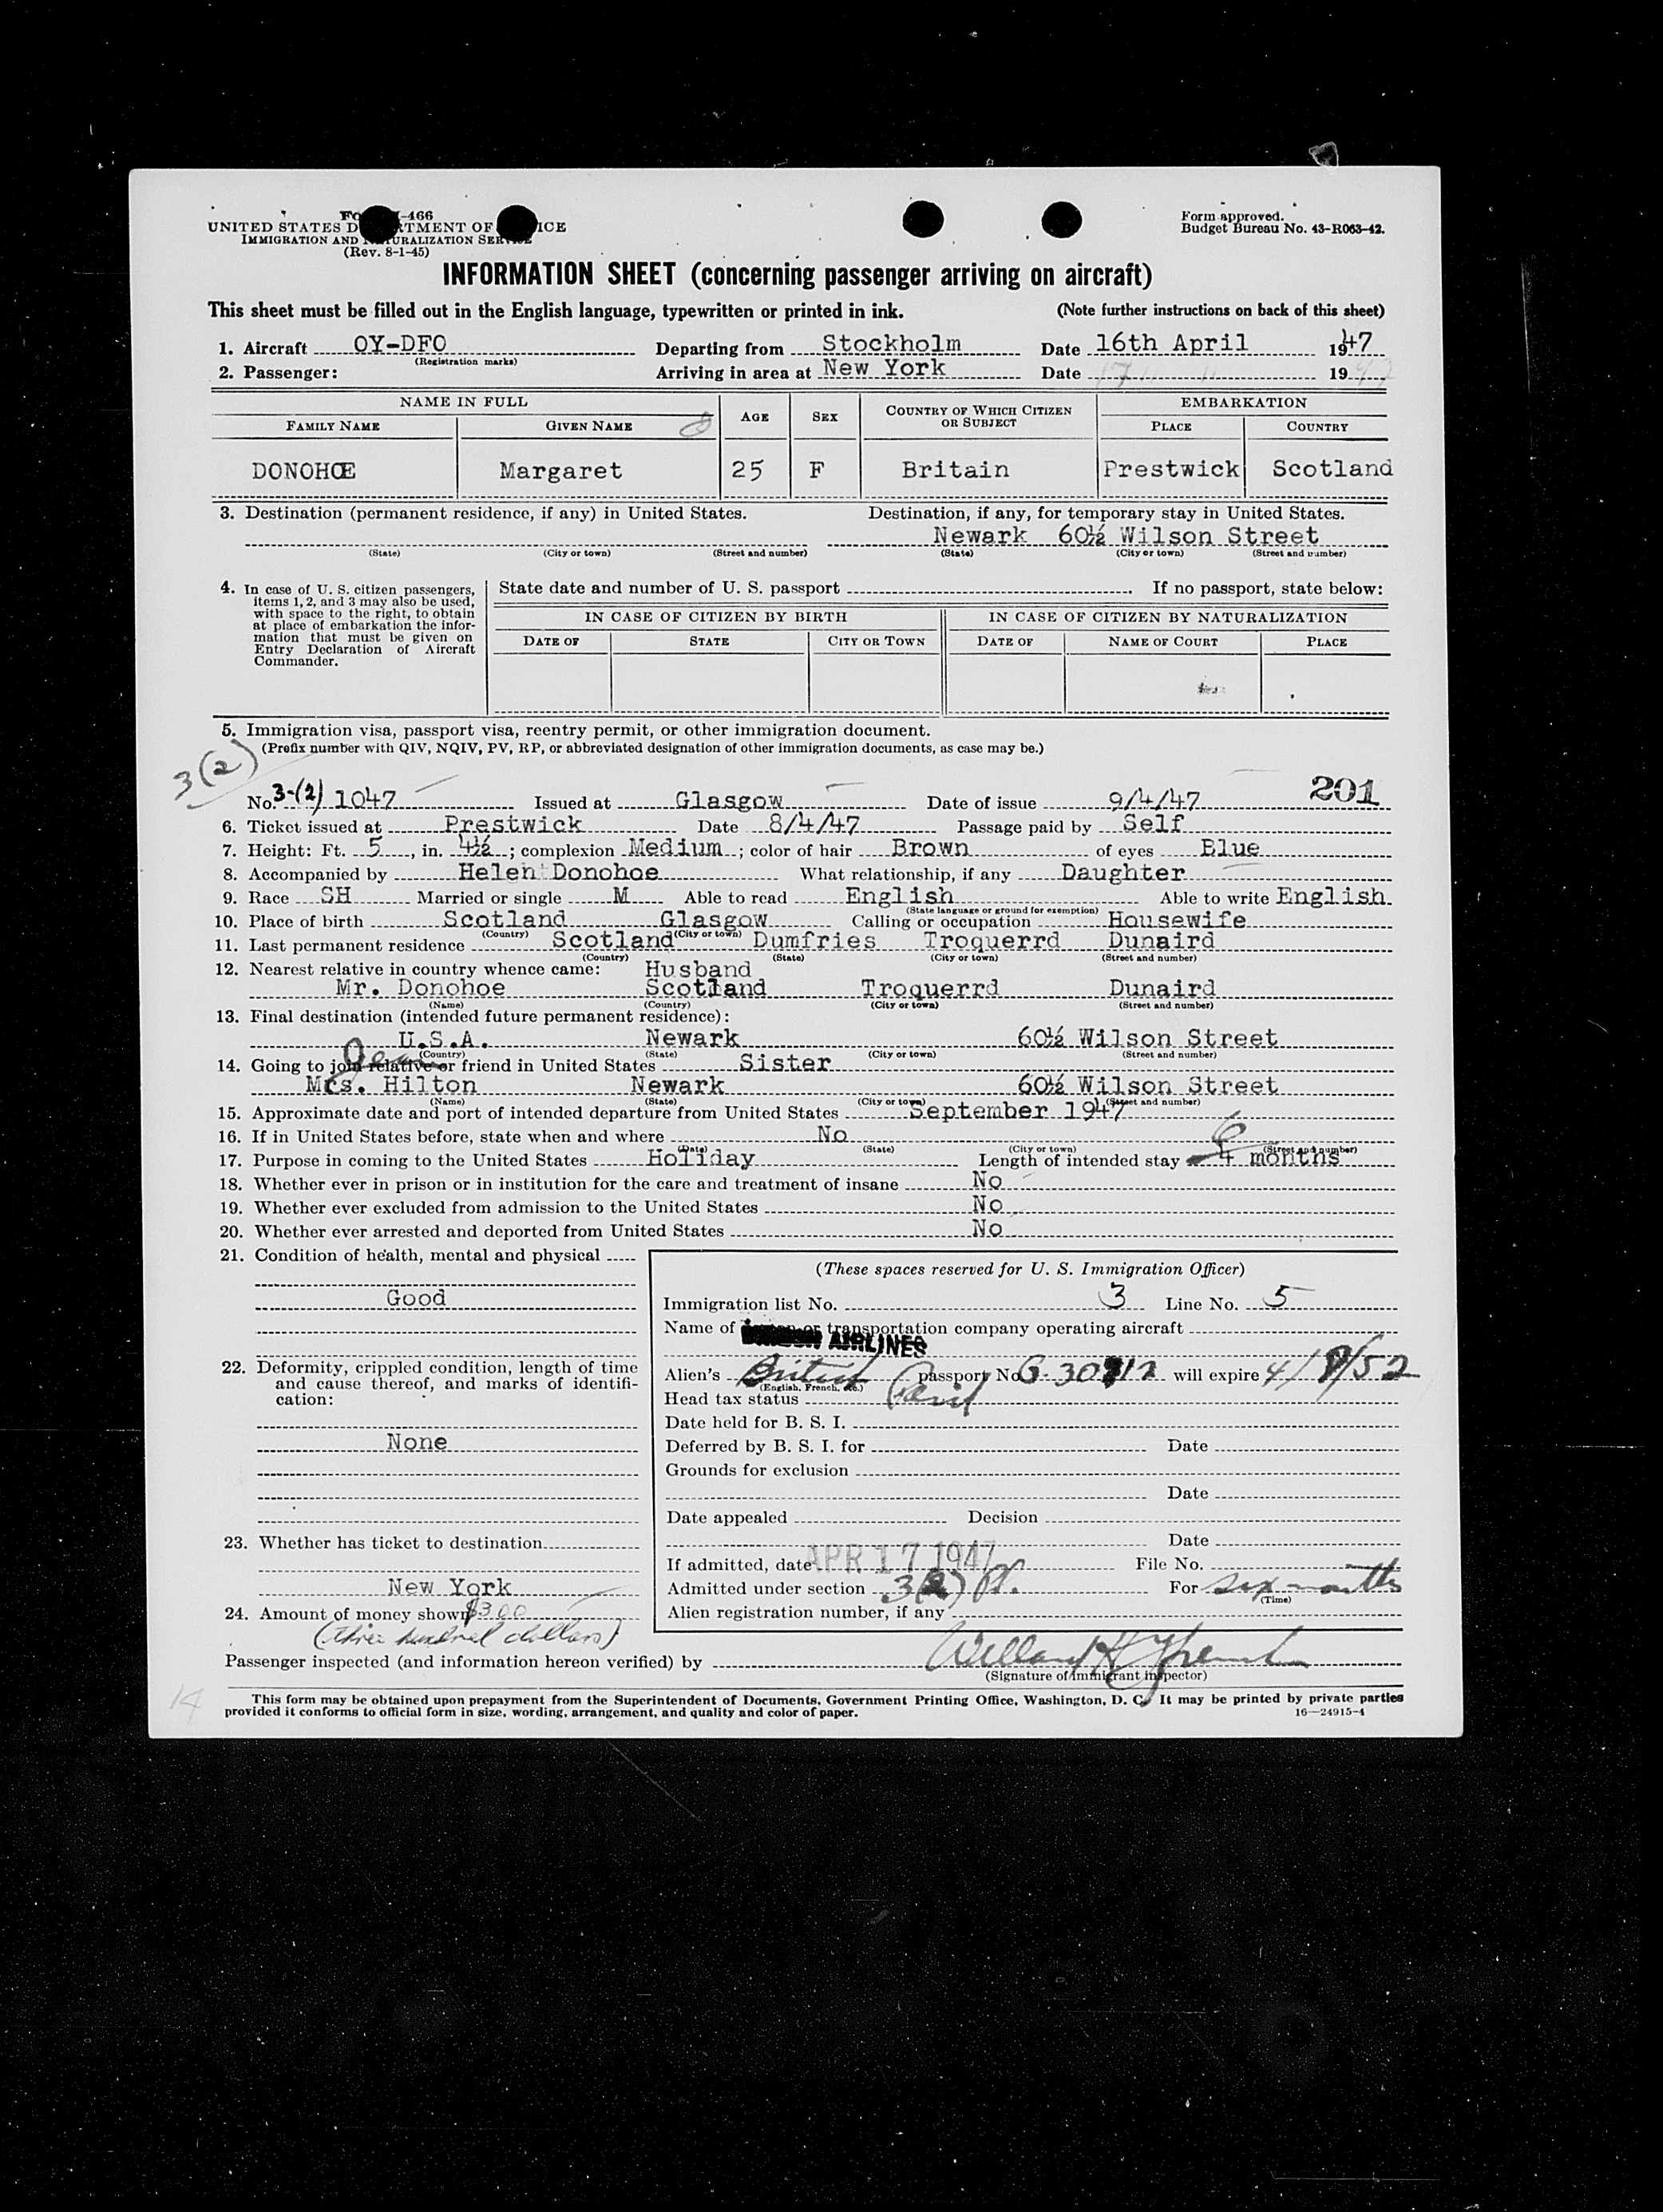 FO -466
UNITED STATES D TMENT OF ICE
IMMIGRATION AND NATURALIZATION SERVICE
(Rev. 8-1-45)
Form approved.
Budget Bureau No. 43-R063-42.
INFORMATION SHEET (concerning passenger arriving on aircraft)
This sheet must be filled out in the English language, typewritten or printed in ink. (Note further instructions on back of this sheet)
1. Aircraft OY-DFO Departing from Stockholm Date 16th April 1947
(Registration marks)
2. Passenger: Arriving in area at New York Date 17 " " 1947
NAME IN FULL AGE SEX COUNTRY OF WHICH CITIZEN OR SUBJECT EMBARKATION
FAMILY NAME GIVEN NAME PLACE COUNTRY
DONOHOE Margaret 25 F Britain Prestwick Scotland
3. Destination (permanent residence, if any) in United States. Destination, if any, for temporary stay in United States.
Newark 60½ Wilson Street
(State) (City or town) (Street and number) (State) (City or town) (Street and number)
4. In case of U. S. citizen passengers, items 1, 2, and 3 may also be used, with space to the right, to obtain at place of embarkation the information that must be given on Entry Declaration of Aircraft Commander.
State date and number of U. S. passport . If no passport, state below:
IN CASE OF CITIZEN BY BIRTH IN CASE OF CITIZEN BY NATURALIZATION
DATE OF STATE CITY OR TOWN DATE OF NAME OF COURT PLACE
5. Immigration visa, passport visa, reentry permit, or other immigration document.
(Prefix number with QIV, NQIV, PV, RP, or abbreviated designation of other immigration documents, as case may be.)
3(2)
201
No. 3-(2) 1047 Issued at Glasgow Date of issue 9/4/47
6. Ticket issued at Prestwick Date 8/4/47 Passage paid by Self
7. Height: Ft. 5, in. 4½; complexion Medium; color of hair Brown of eyes Blue
8. Accompanied by Helen Donohoe What relationship, if any Daughter
9. Race SH Married or single M Able to read English Able to write English
(State language or ground for exemption)
10. Place of birth Scotland Glasgow Calling or occupation Housewife
(Country) (City or town)
11. Last permanent residence Scotland Dumfries Troquerrd Dunaird
(Country) (State) (City or town) (Street and number)
12. Nearest relative in country whence came: Husband
Mr. Donohoe Scotland Troquerrd Dunaird
(Name) (Country) (City or town) (Street and number)
13. Final destination (intended future permanent residence):
U.S.A. Newark 60½ Wilson Street
(Country) (State) (City or town) (Street and number)
14. Going to join relative or friend in United States Sister
Jean
Mrs. Hilton Newark 60½ Wilson Street
(Name) (State) (City or town) (Street and number)
15. Approximate date and port of intended departure from United States September 1947
16. If in United States before, state when and where No
(Date) (State) (City or town) (Street and number)
6
17. Purpose in coming to the United States Holiday Length of intended stay 4 months
18. Whether ever in prison or in institution for the care and treatment of insane No
19. Whether ever excluded from admission to the United States No
20. Whether ever arrested and deported from United States No
21. Condition of health, mental and physical
Good
22. Deformity, crippled condition, length of time and cause thereof, and marks of identification:
None
23. Whether has ticket to destination
New York
24. Amount of money shown $300
(three hundred dollars)
(These spaces reserved for U. S. Immigration Officer)
Immigration list No. 3 Line No. 5
Name of transportation company operating aircraft
AIRLINES
Alien's British passport No. will expire 4/8/52
(English, French, etc.)
Head tax status Paid
Date held for B. S. I.
Deferred by B. S. I. for Date
Grounds for exclusion
Date
Date appealed Decision
Date
If admitted, date APR 17 1947 File No.
Admitted under section 3(2) For six months
(Time)
Alien registration number, if any
Passenger inspected (and information hereon verified) by
(Signature of immigrant inspector)
14
This form may be obtained upon prepayment from the Superintendent of Documents, Government Printing Office, Washington, D. C. It may be printed by private parties
provided it conforms to official form in size, wording, arrangement, and quality and color of paper. 16—24915-4